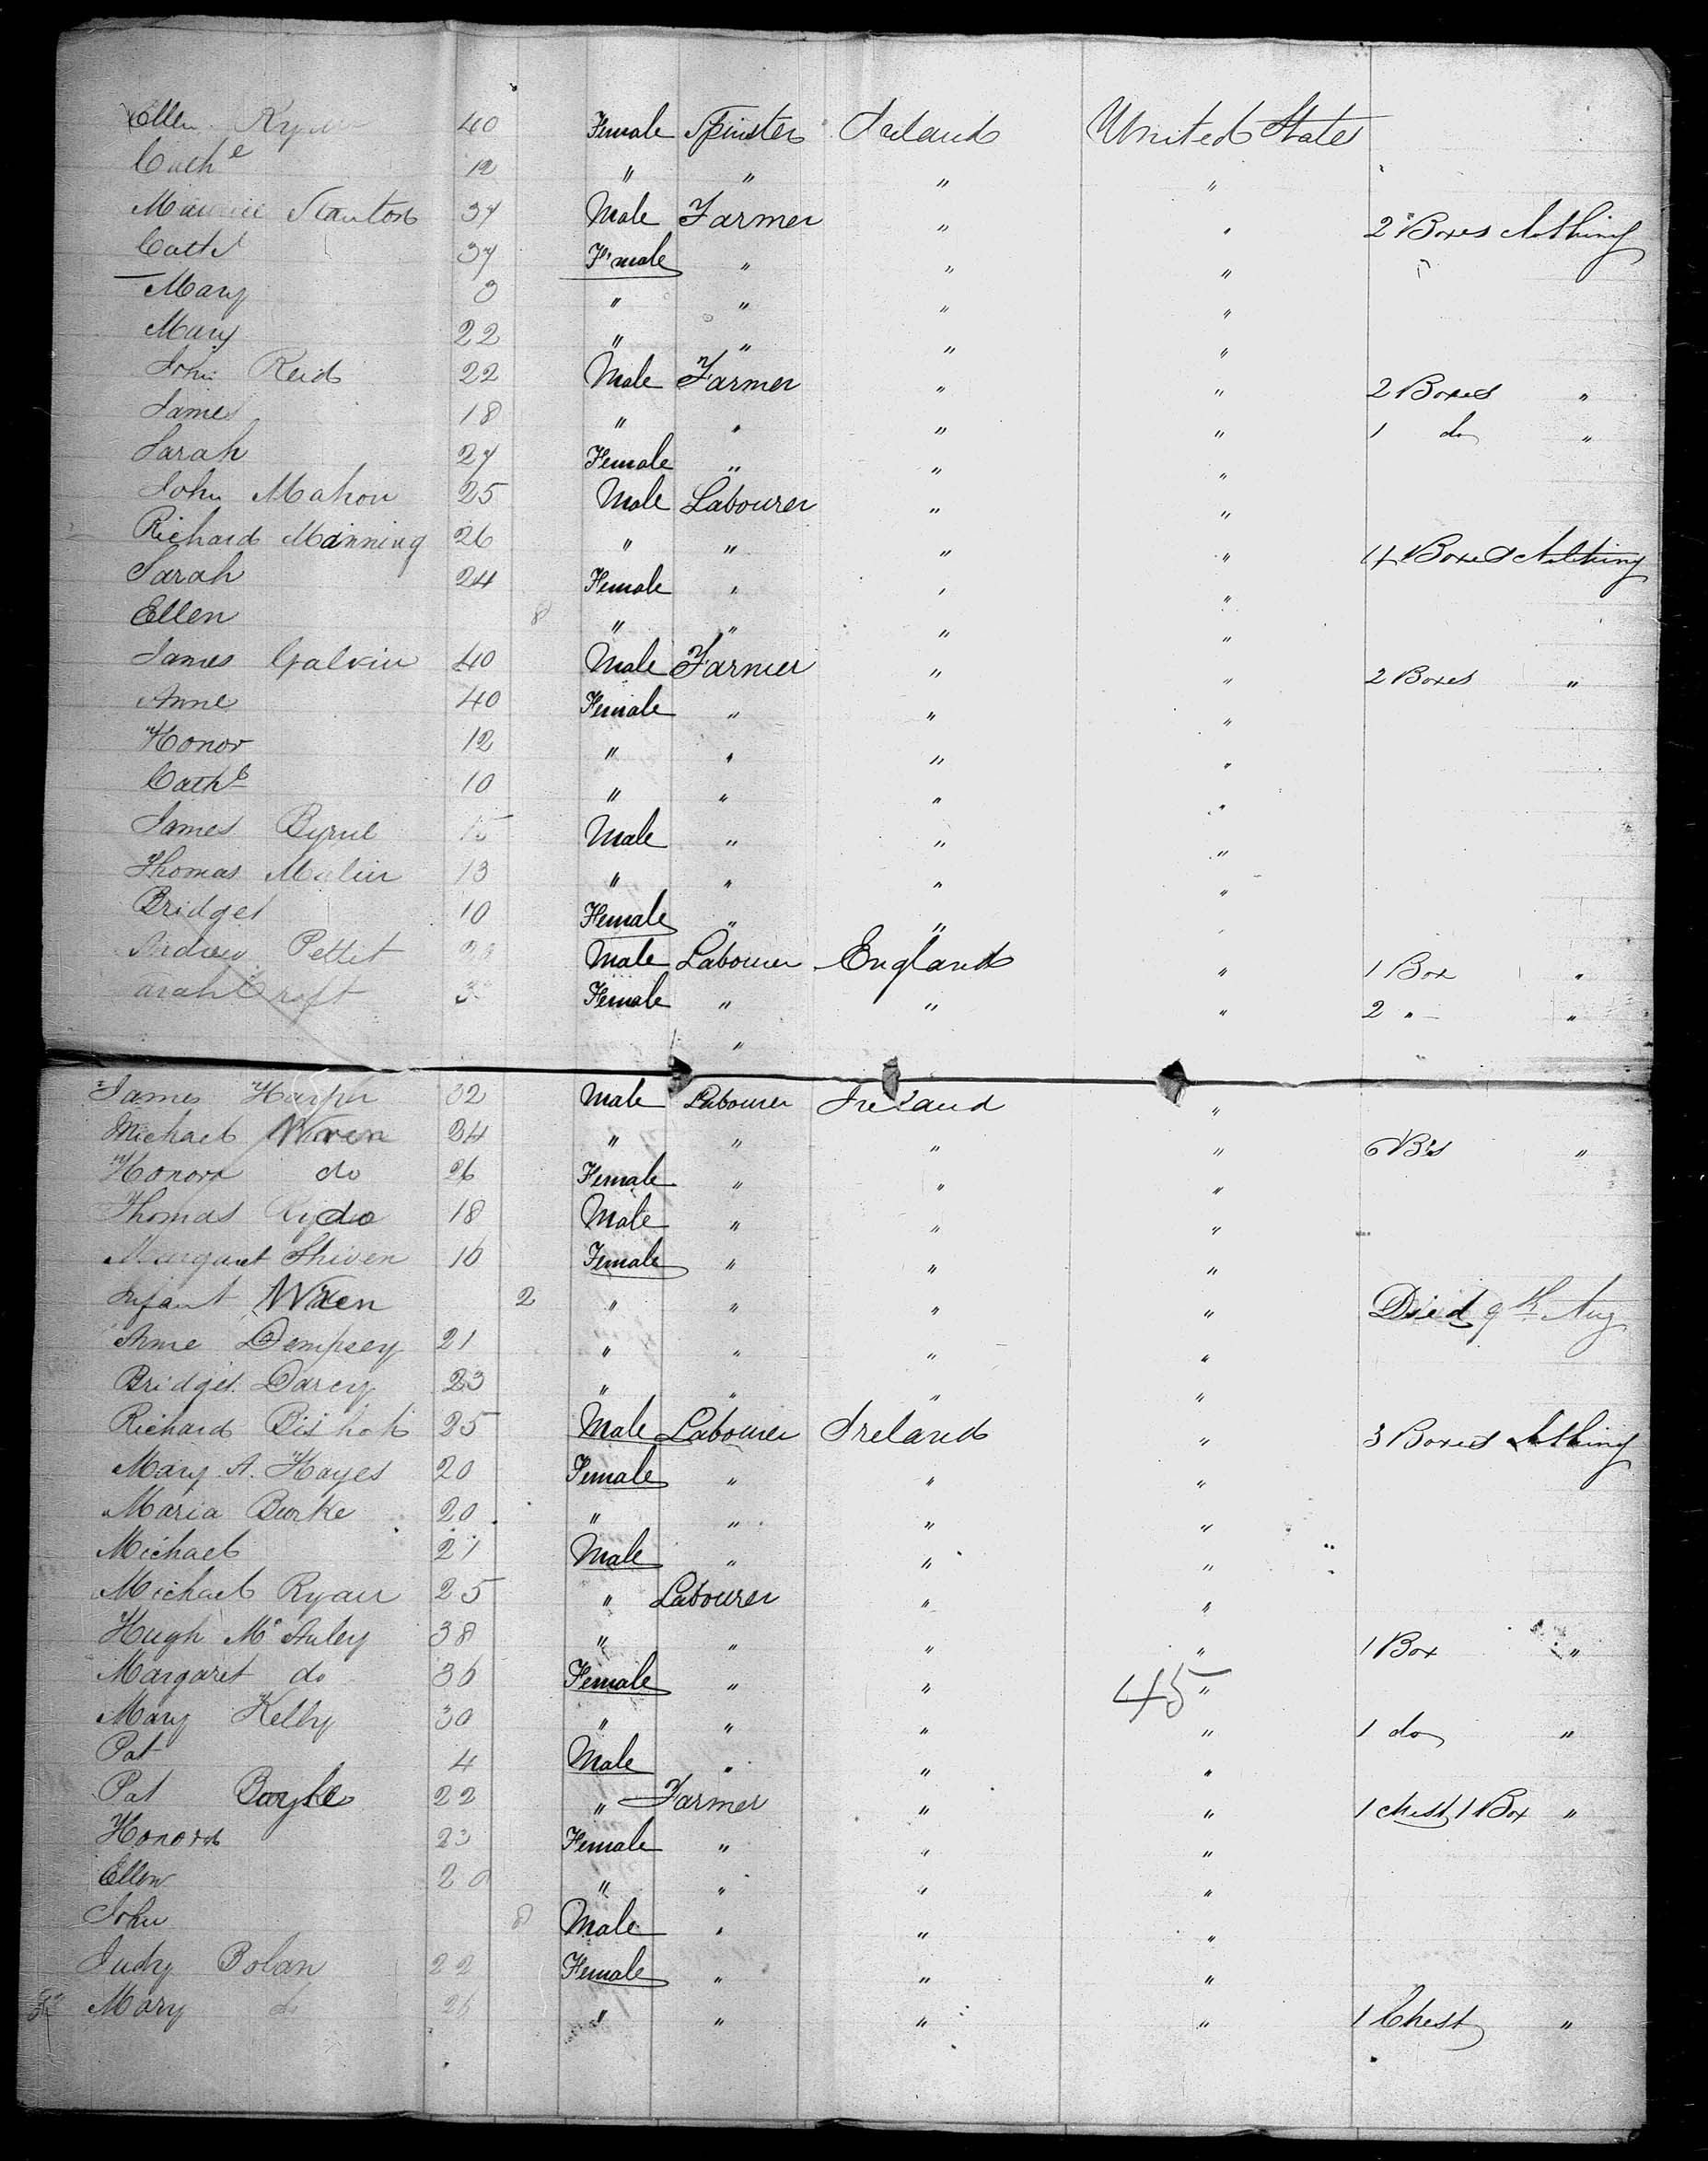 Ellen Ryan 40 Female Spinster Ireland United States
Cathe 12 " " " "
Maurice Stanton 37 Male Farmer " " 2 Boxes Clothing
Cathe 37 Female " " "
Mary 9 " " " "
Mary 22 " " " "
John Reid 22 Male Farmer " " 2 Boxes "
James 18 " " " " 1 do "
Sarah 27 Female " " "
John Mahon 25 Male Labourer " "
Richard Manning 26 " " " " 4 Boxes Clothing
Sarah 24 Female " " "
Ellen 8 " " " "
James Galvin 40 Male Farmer " " 2 Boxes "
Anne 40 Female " " "
Honor 12 " " " "
Cathe 10 " " " "
James Byrne 15 Male " " "
Thomas Malin 13 " " " "
Bridget 10 Female " " "
Andrew Pettit Male Labourer England " 1 Box "
arah Croft Female " " " 2 " "
"
James Harper 32 Male Labourer Ireland "
Michael Wren 34 " " " " 6 Bxs "
Honora do 26 Female " " "
Thomas do 18 Male " " "
Margaret Shiven 16 Female " " "
Infant Wren 2 " " " " Died 9th Aug
Anne Dempsey 21 " " " "
Bridget Darcy 23 " " " "
Richard Bishop 25 Male Labourer Ireland " 3 Boxes Clothing
Mary A. Hayes 20 Female " " "
Maria Burke 20 " " " "
Michael 21 Male " " "
Michael Ryan 25 " Labourer " "
Hugh McAuley 38 " " " " 1 Box "
Margaret do 36 Female " " 45 "
Mary Kelly 30 " " " " 1 do "
Pat 4 Male " " "
Pat Boyle 22 " Farmer " " 1 chest 1 Box "
Honora 23 Female " " "
Ellen 20 " " " "
John 8 Male " " "
Judy Bolan 22 Female " " "
Mary do 26 " " " " 1 Chest "